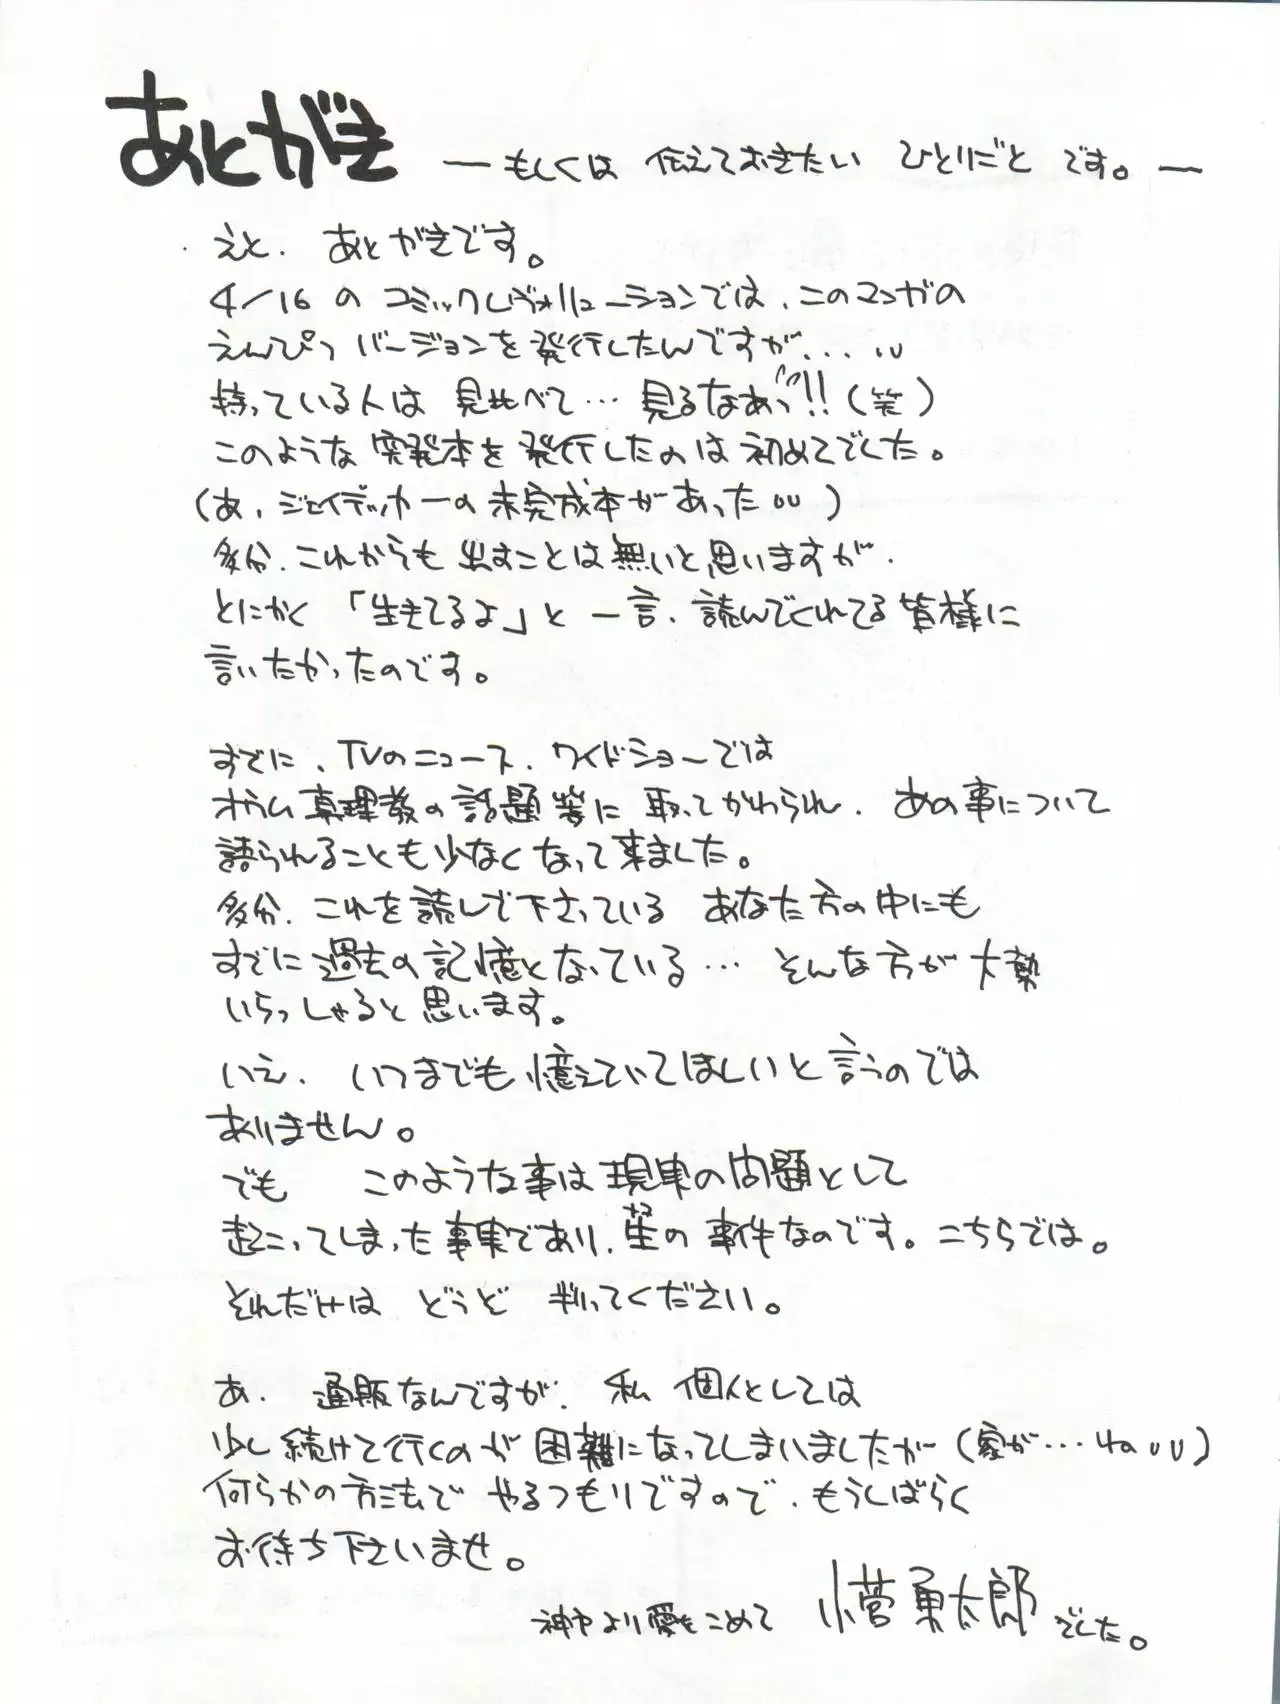 あとがき —もしくは 伝えておきたい ひとりごと です。—
えと、あとがきです。
4/16 の コミックレヴォリューションでは、このマンガの
えんぴつ バージョンを 発行したんですが、...
持っている人は 見比べて… 見るなあっ!!(笑)
このような 突発本を 発行したのは 初めてでした。
(あ、ジェイデッカーの 未完成本が あった )
多分、これからも 出すことは 無いと思いますが、
とにかく 「生きてるよ」と 一言、読んでくれてる 皆様に
言いたかったのです。
すでに、TVのニュース、ワイドショーでは
オウム真理教の 話題等に 取ってかわられ、 あの事について
語られることも少なくなって来ました。
多分、これを読んで下さっている あなた方の中にも
すでに過去の記憶となっている… そんな方が 大勢
いらっしゃると思います。
いえ、いつまでも憶えていてほしいと言うのでは
ありません。
でも このような事は現実の問題として
起こってしまった事実であり、生の 事件なのです。こちらでは。
それだけは どうぞ 判ってください。
あ、通販なんですが、私 個人としては
少し続けて行くのが 困難になってしまいましたが(家が…ね)
何らかの方法で やるつもりですので、もうしばらく
お待ち下さいませ。
神戸より愛をこめて 小菅勇太郎 でした。